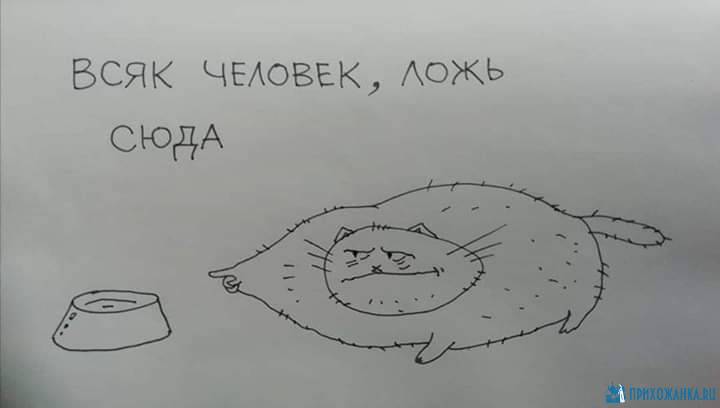 ВСЯК ЧЕЛОВЕК, ЛОЖЬ
СЮДА
ПРИХОЖАНКА.RU